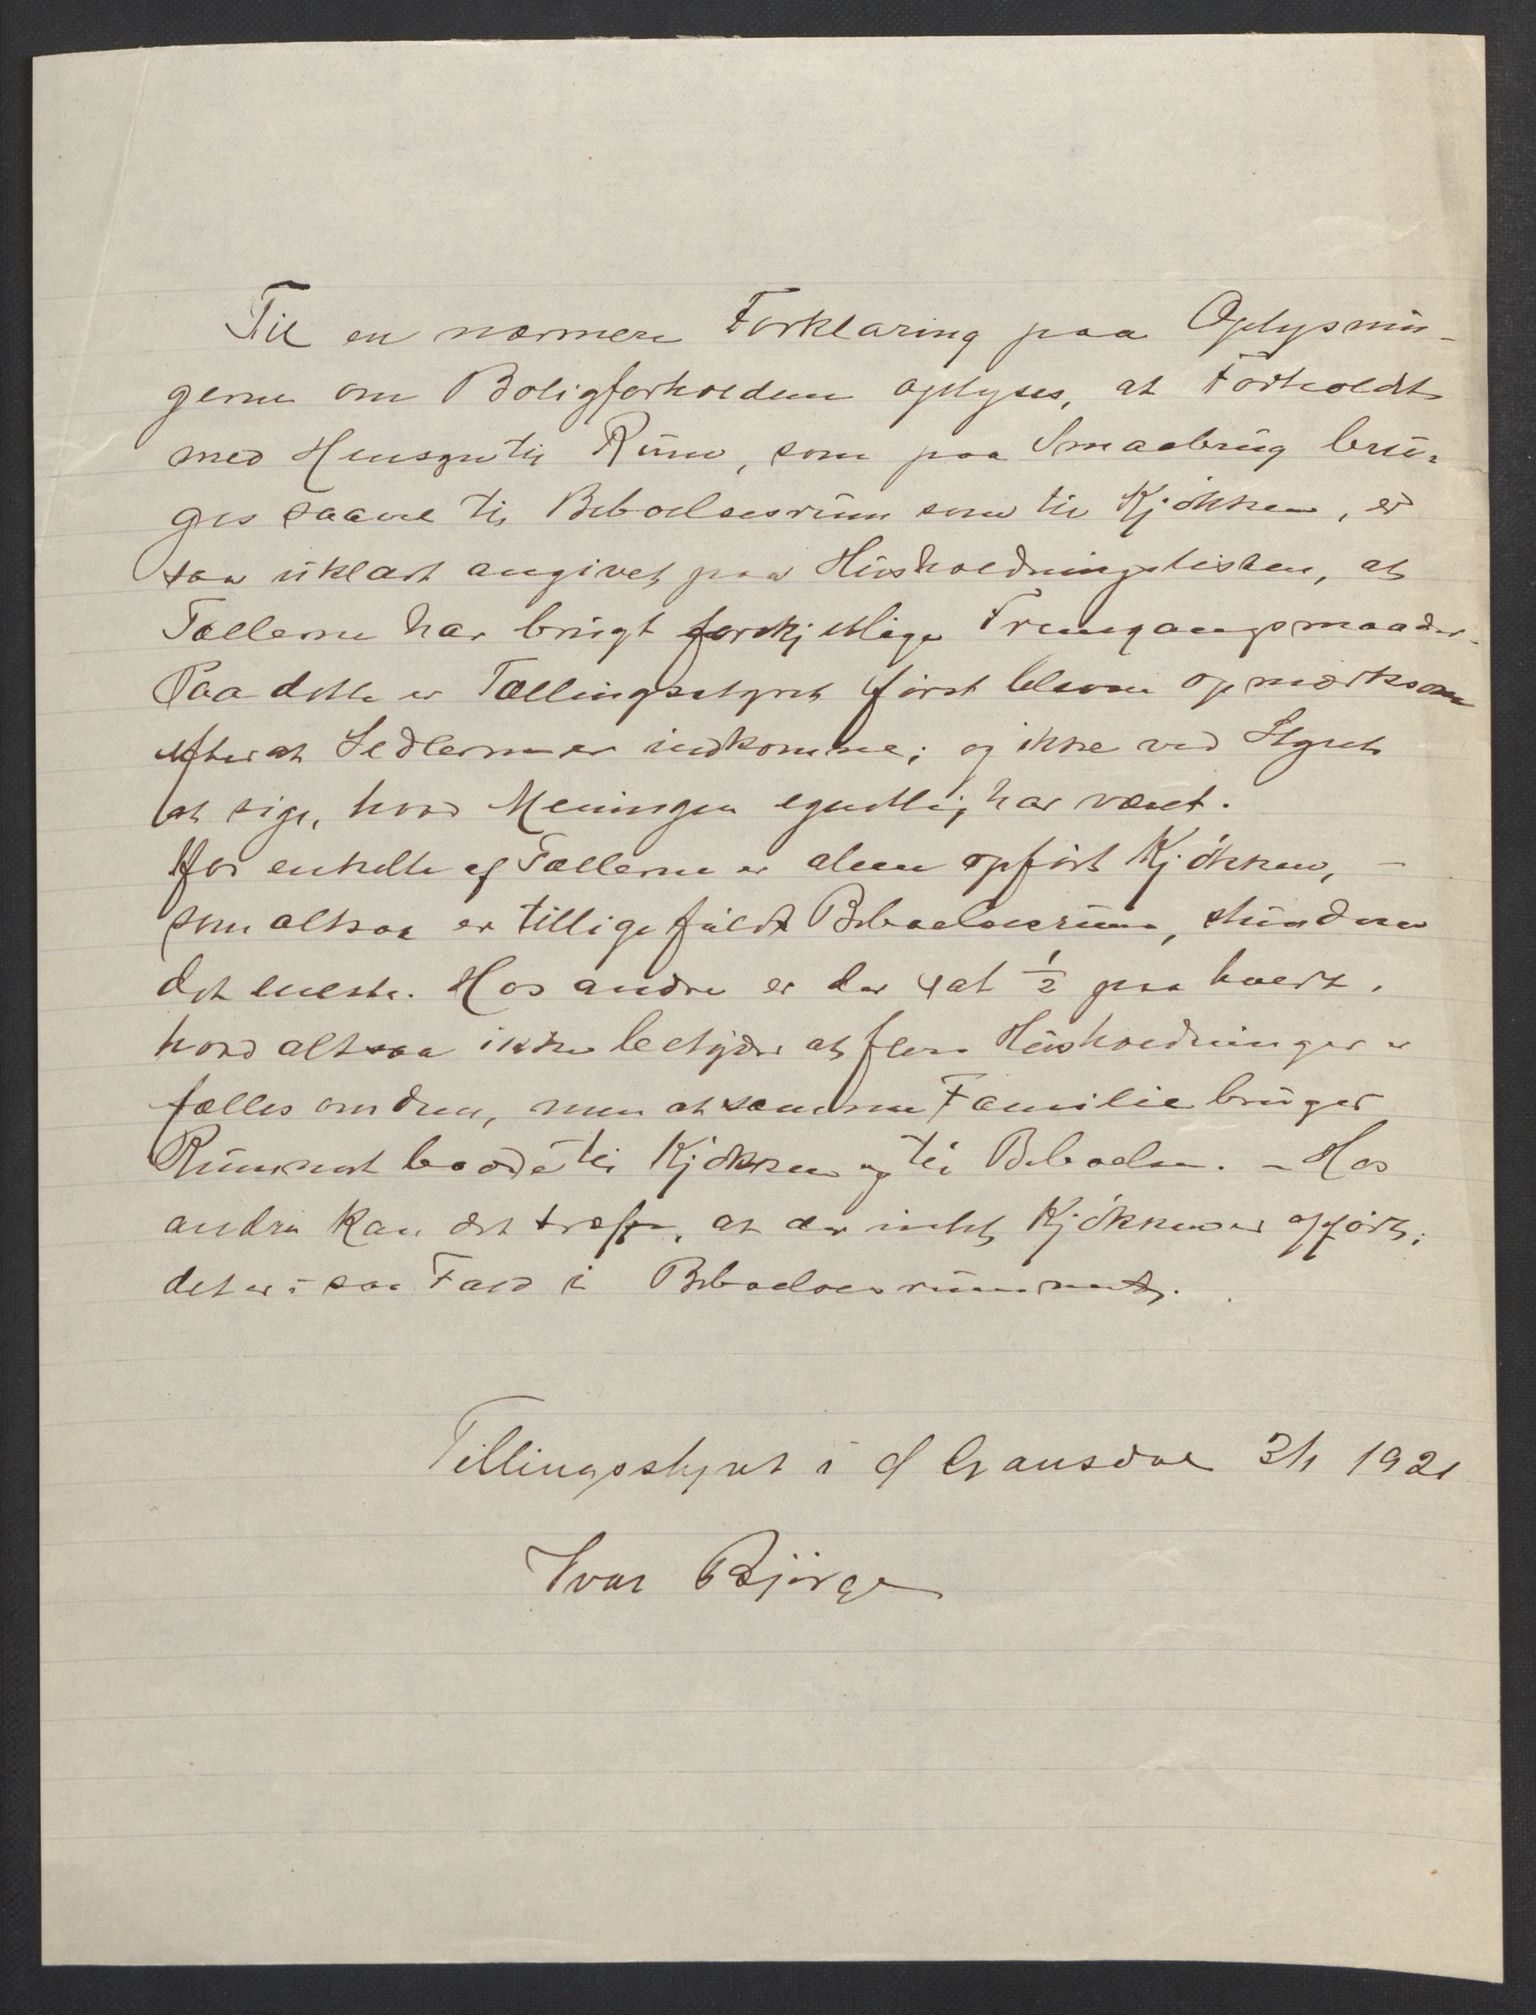 Til en nærmere Forklaring paa Oplysnin-
gerne om Boligforholdene oplyses, at Forholdt
med Hensyn til Rum, som paa Smaabrug bru-
ges saavel til Beboelsesrum som til Kjøkken, er
saa uklart angivet paa Husholdningslisten, at
Tællerne har brugt forskjellige Fremgangsmaader.
Paa dette er Tællingsstyret først bleven opmerksom
efterat Sedlerne er indkomne; og ikke ved Styret
at sige, hvad Meningen egentlig har været.
For enkelte af Tællerne er alene opført Kjøkken, -
som altsaa er tillige fuldt Beboelsesrum, stundom
det eneste. Hos andre er der sat 1/2 paa hvert,
hvad altsaa ikke betyder at flere Husholdninger er
fælles om dem, men at samme Familie bruger
Rummet baade til Kjøkken og til Beboelse. - Hos
andre kan det træffe, at der intet Kjøkken er opført;
det er i saa Fald i Beboelsesrummet.
Tellingsstyret i Gausdal 3/1 1921
Ivar Bjørge